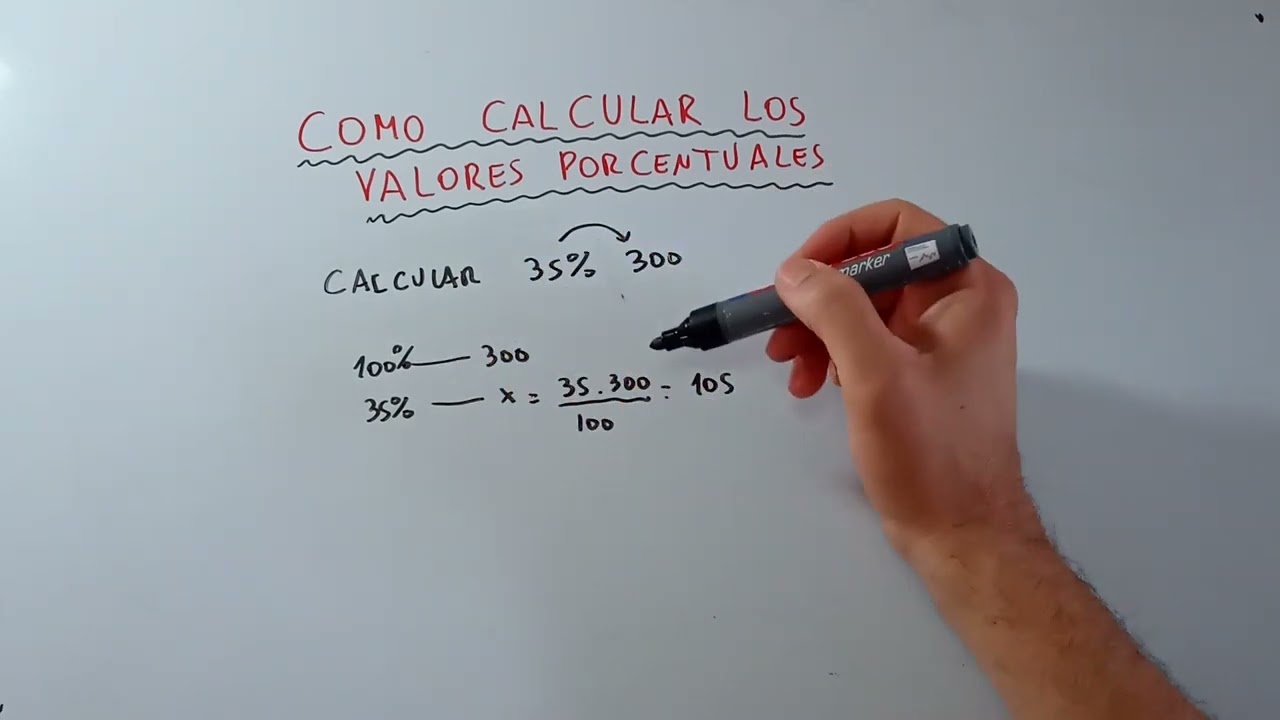 COMO CALCULAR LOS
VALORES PORCENTUALES
CALCULAR 35% 300
marker
100% — 300
35% — x = 35.300 = 105
100